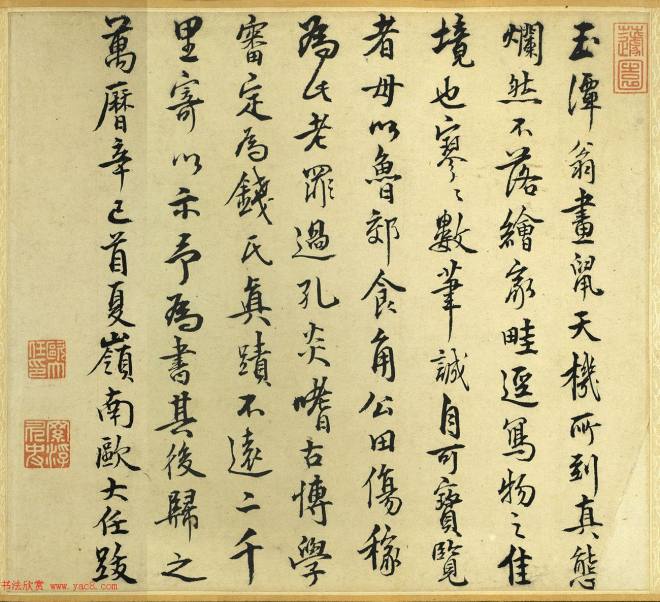 玉潭翁畫鼠天機所到真態
爛然不落繪家畦逕寫物之佳
境也寥〻數筆誠自可寶覽
者毋以魯郊食角公田傷稼
為氏老罪過孔炎嗜古博學
審定為錢氏真蹟不遠二千
里寄以示予為書其後歸之
萬曆辛巳首夏嶺南歐大任跋
书法欣赏 www.yac8.com